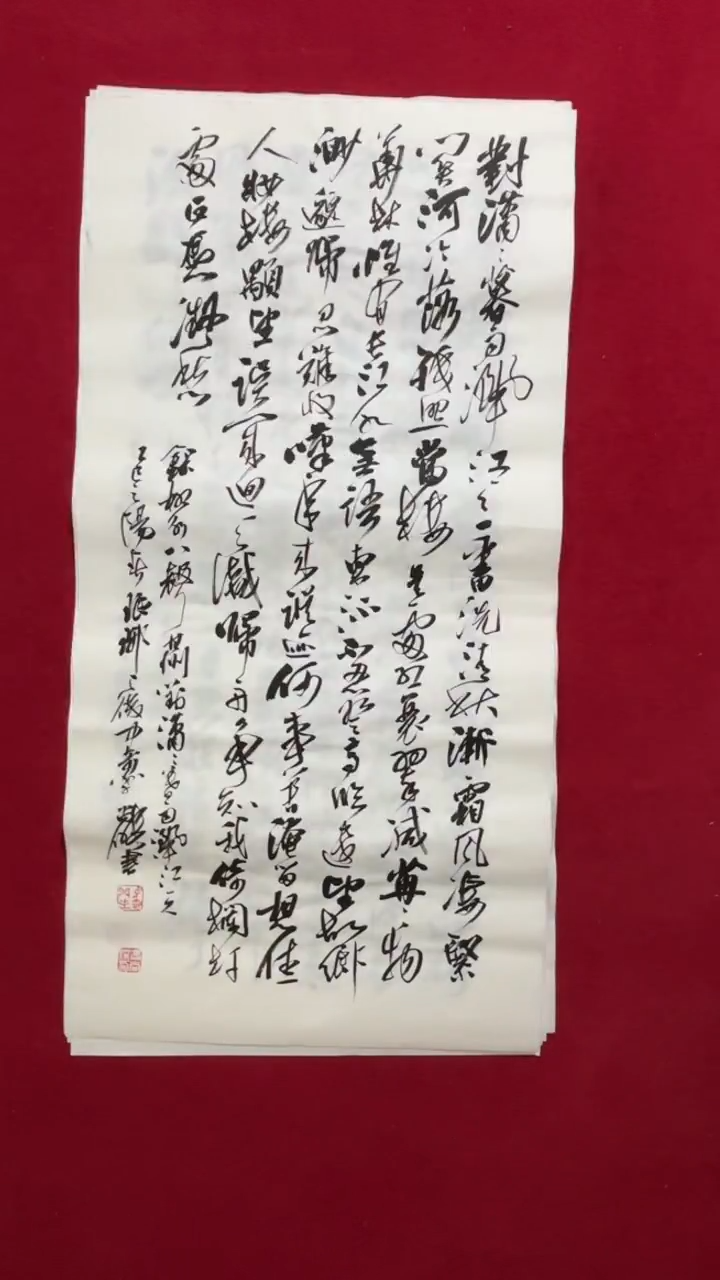 對瀟瀟暮雨灑江天一番洗清秋漸霜風凄緊
關河冷落殘照當樓是處紅衰翠減苒苒物
華休惟有長江水無語東流不忍登高臨遠望故鄉
渺邈歸思難收嘆年來蹤迹何事苦淹留想佳
人妝樓顒望誤幾迴天識歸舟爭知我倚欄杆
處正恁凝愁
錄柳永八聲甘州對瀟瀟暮雨灑江天
乙巳之陽春書